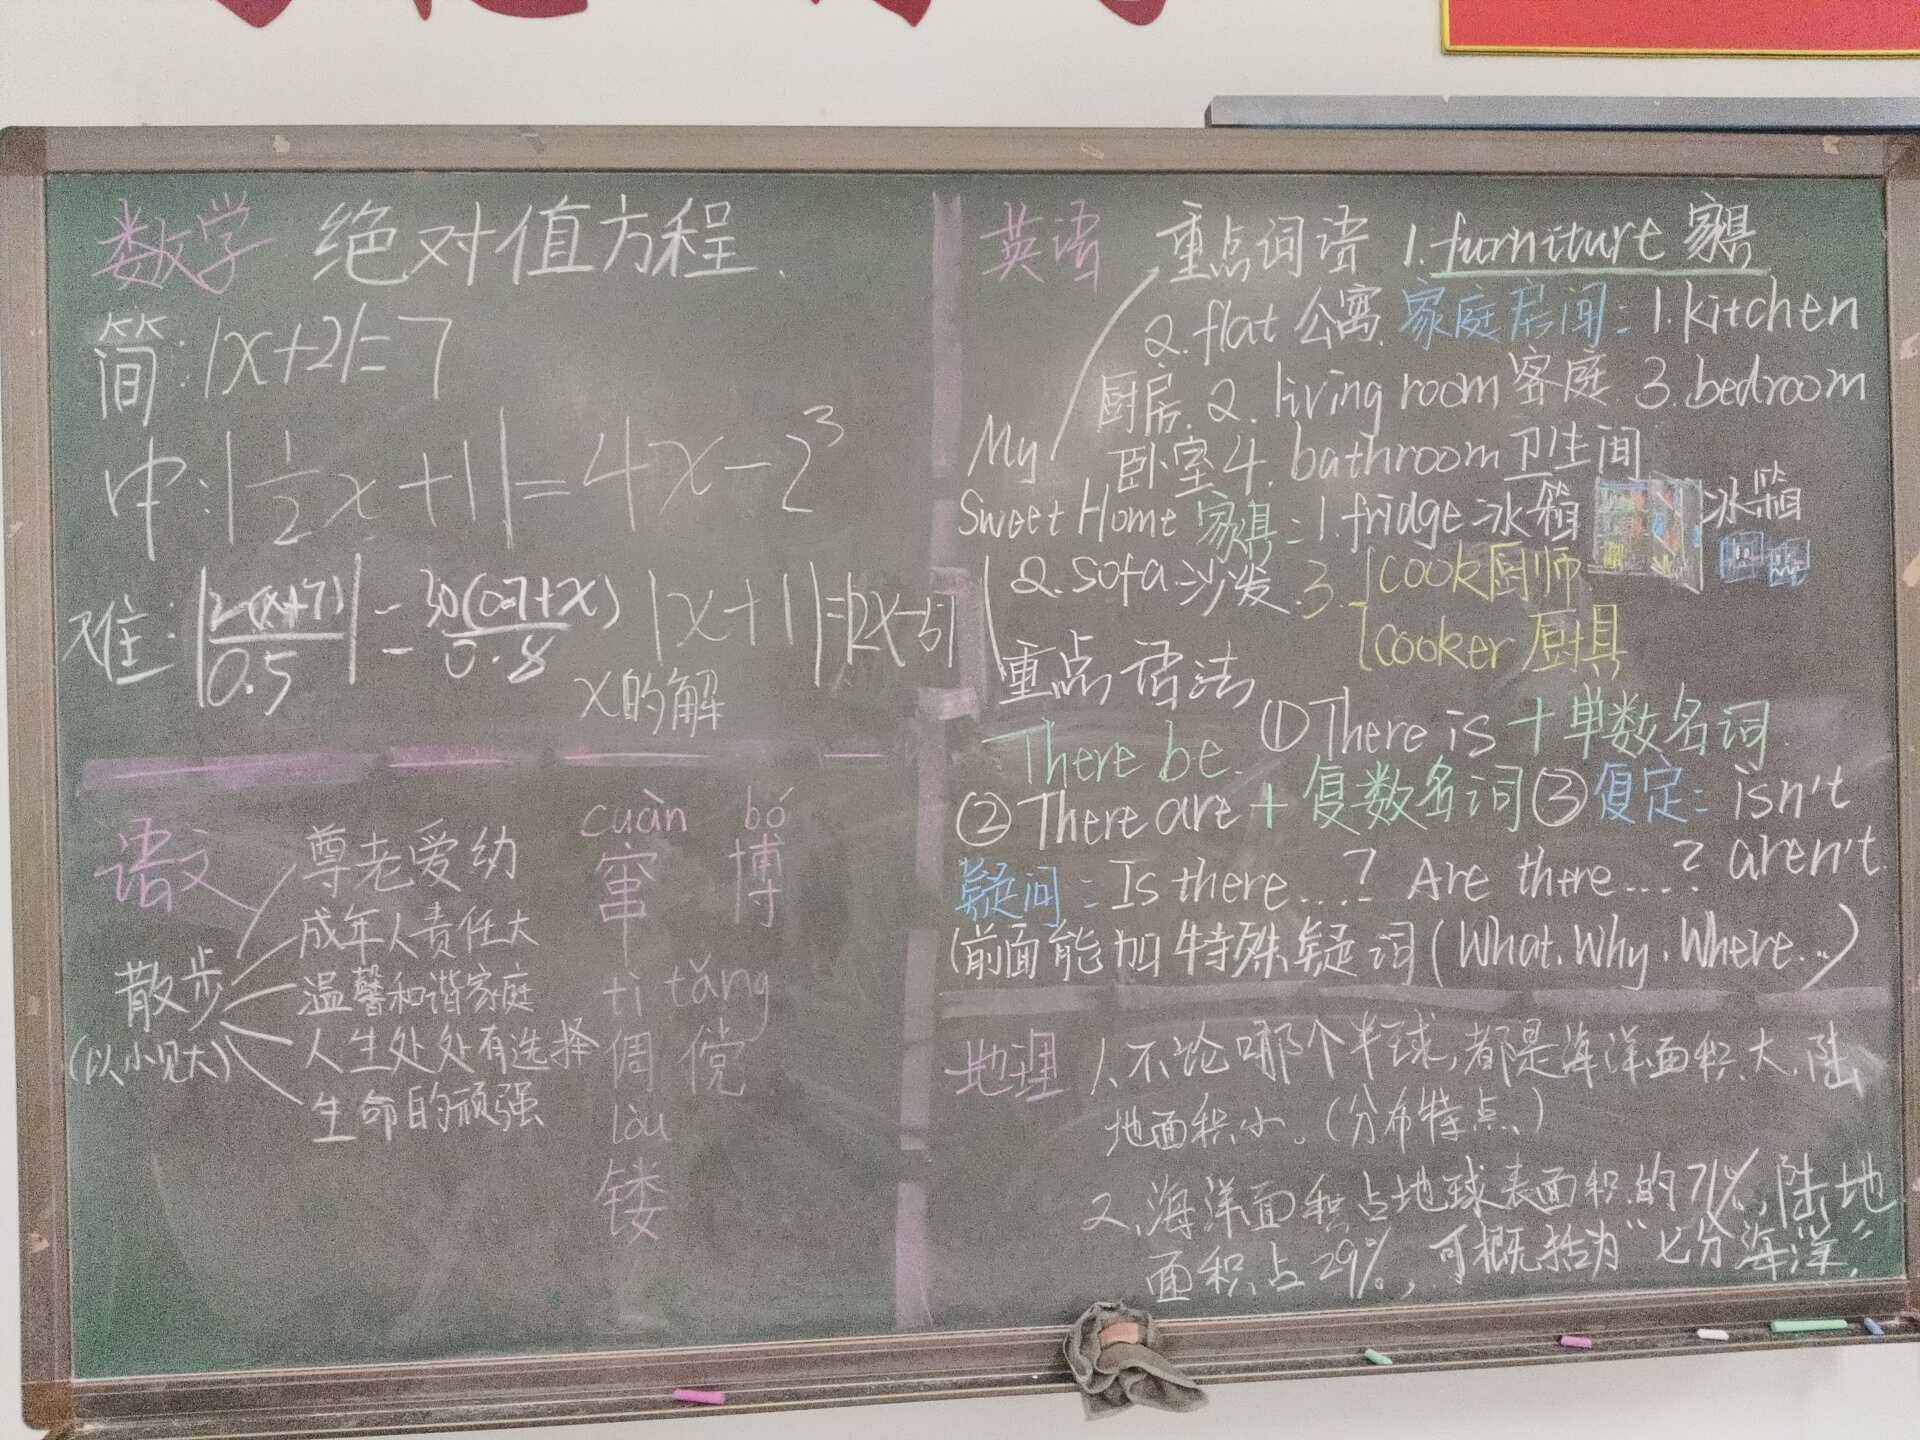 数学 绝对值方程.
简:|x+2|=7
中:|1/2x+1|=4x-2³
难: 0.5 = 30(0.7+x)/0.8 |x+1|=|2x-5|
x的解
语文
散步
(以小见大)
尊老爱幼
成年人责任大
温馨和谐家庭
人生处处有选择
生命的顽强
cuàn bó
窜 博
tì tǎng
倜 傥
lòu
镂
英语 重点词语 1.furniture 家具
2.flat 公寓 家庭房间:1.kitchen
厨房.2.living room 客庭.3.bedroom
My 卧室4.bathroom卫生间
Sweet Home 家具:1.fridge冰箱 冰箱
2.sofa沙发.3.cook厨师
cooker 厨具
重点语法
There be. ①There is +单数名词
②There are +复数名词③复定:isn't
aren't.
疑问:Is there...? Are there....?
(前面能加特殊疑词(What.Why.Where...)
地理 1、不论哪个半球,都是海洋面积大,陆
地面积小。(分布特点)
2、海洋面积占地球表面积的71%,陆地
面积占29%,可概括为“七分海洋,